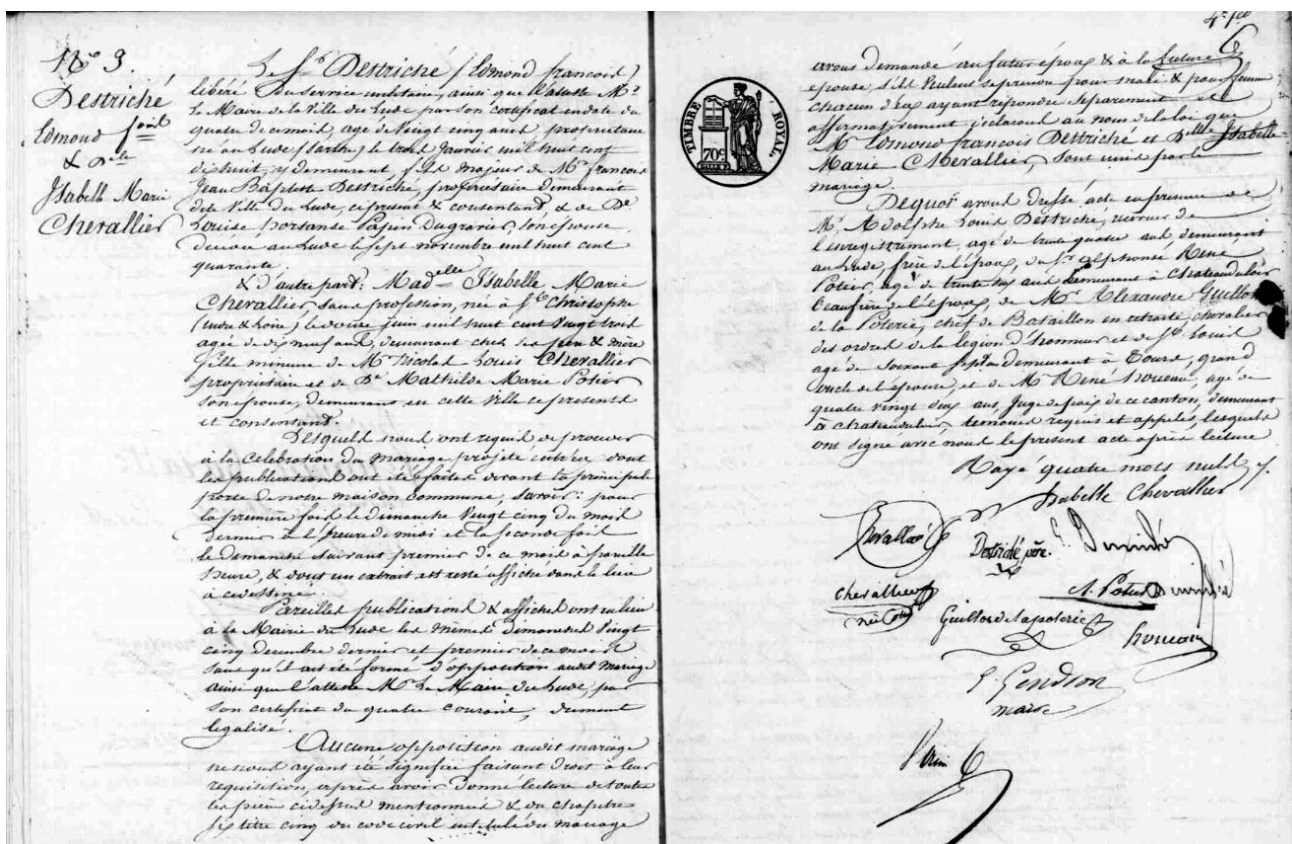 N° 3
Destriché
Edmond f.ois
& D.lle
Isabelle Marie
Chevallier
Le S.r Destriché (Edmond françois)
libéré du service militaire, ainsi que l'atteste M.r
le Maire de la Ville du Lude par son certificat en date du
quatre de ce mois, agé de vingt cinq ans, propriétaire
né au Lude (Sarthe) le trois janvier mil huit cent
dix huit, y demeurant, fils majeur de M.r françois
Jean Baptiste Destriché, propriétaire demeurant
dite Ville du Lude, ci présent & consentant, & de D.e
Louise hortanse Papin Dugravier, son épouse
décédée au Lude le sept novembre mil huit cent
quarante.
& d'autre part: Mad.elle Isabelle Marie
Chevallier, sans profession, née à S.t Christophe
(indre & Loire) le douze juin mil huit cent vingt trois
agée de dix neuf ans, demeurant chez ses père & mère
fille mineure de M.r Nicolas Louis Chevallier
propriétaire et de D.e Mathilde Marie Potier
son épouse, demeurant en cette Ville ce présents
et consentant.
Lesquels nous ont requis de procéder
à la célébration du mariage projeté entr'eux dont
les publications ont été faites devant la principale
porte de notre maison commune, Savoir: pour
la première fois le dimanche vingt cinq du mois
dernier à l'heure de midi et la seconde fois
le dimanche suivant premier de ce mois à pareille
heure, & dont un extrait est resté affiché dans le lieu
à ce destiné.
Pareilles publications & affiches ont eu lieu
à la Mairie du Lude les mêmes dimanches vingt
cinq décembre dernier et premier de ce mois
sans qu'il ait été formé d'opposition audit mariage
ainsi que l'atteste M.r le Maire du Lude, par
son certificat du quatre courant, dument
légalisé.
Aucune opposition audit mariage
ne nous ayant été signifiée faisant droit à leur
réquisition, après avoir donné lecture de toutes
les pièces cidessus mentionnées & du chapitre
six titre cinq du code civil intitulé du mariage
4e f.et
TIMBRE ROYAL.
70c
avons demandé au futur époux & à la future
épouse, s'ils veulent se prendre pour mari & pour femme
chacun d'eux ayant répondu séparément et
affirmativement déclarons au nom de la loi que
M.r Edmond françois Destriché et D.elle Isabelle
Marie Chevallier, sont unis par le
mariage.
De quoi avons dressé acte en présence de
M.r Adolphe Louis Destriché, receveur de
l'enregistrement, agé de trente quatre ans demeurant
au Lude, frère de l'époux, du S.r alphonse René
Potier, agé de trente six ans demeurant à Chateauduloir
beaufrère de l'époux, de M.r Alexandre Guillos
de la Poterie, chef de Bataillon en retraite, chevalier
des ordres de la légion d'honneur et de S.t Louis
agé de soixante sept ans demeurant à Tours, grand
oncle de l'épouse, et de M.r René houeau, agé de
quatre vingt deux ans, juge de paix de ce canton, demeurant
à chateauduloir, témoins requis et appelés, lesquels
ont signé avec nous le présent acte après lecture
Rayé quatre mots nuls
Isabelle Chevallier
Chevallier
Destriché père
E. Destriché
chevallier
née Potier
A. Potier Destriché
Guillos de la poterie
houeau
P. Gendron
maire